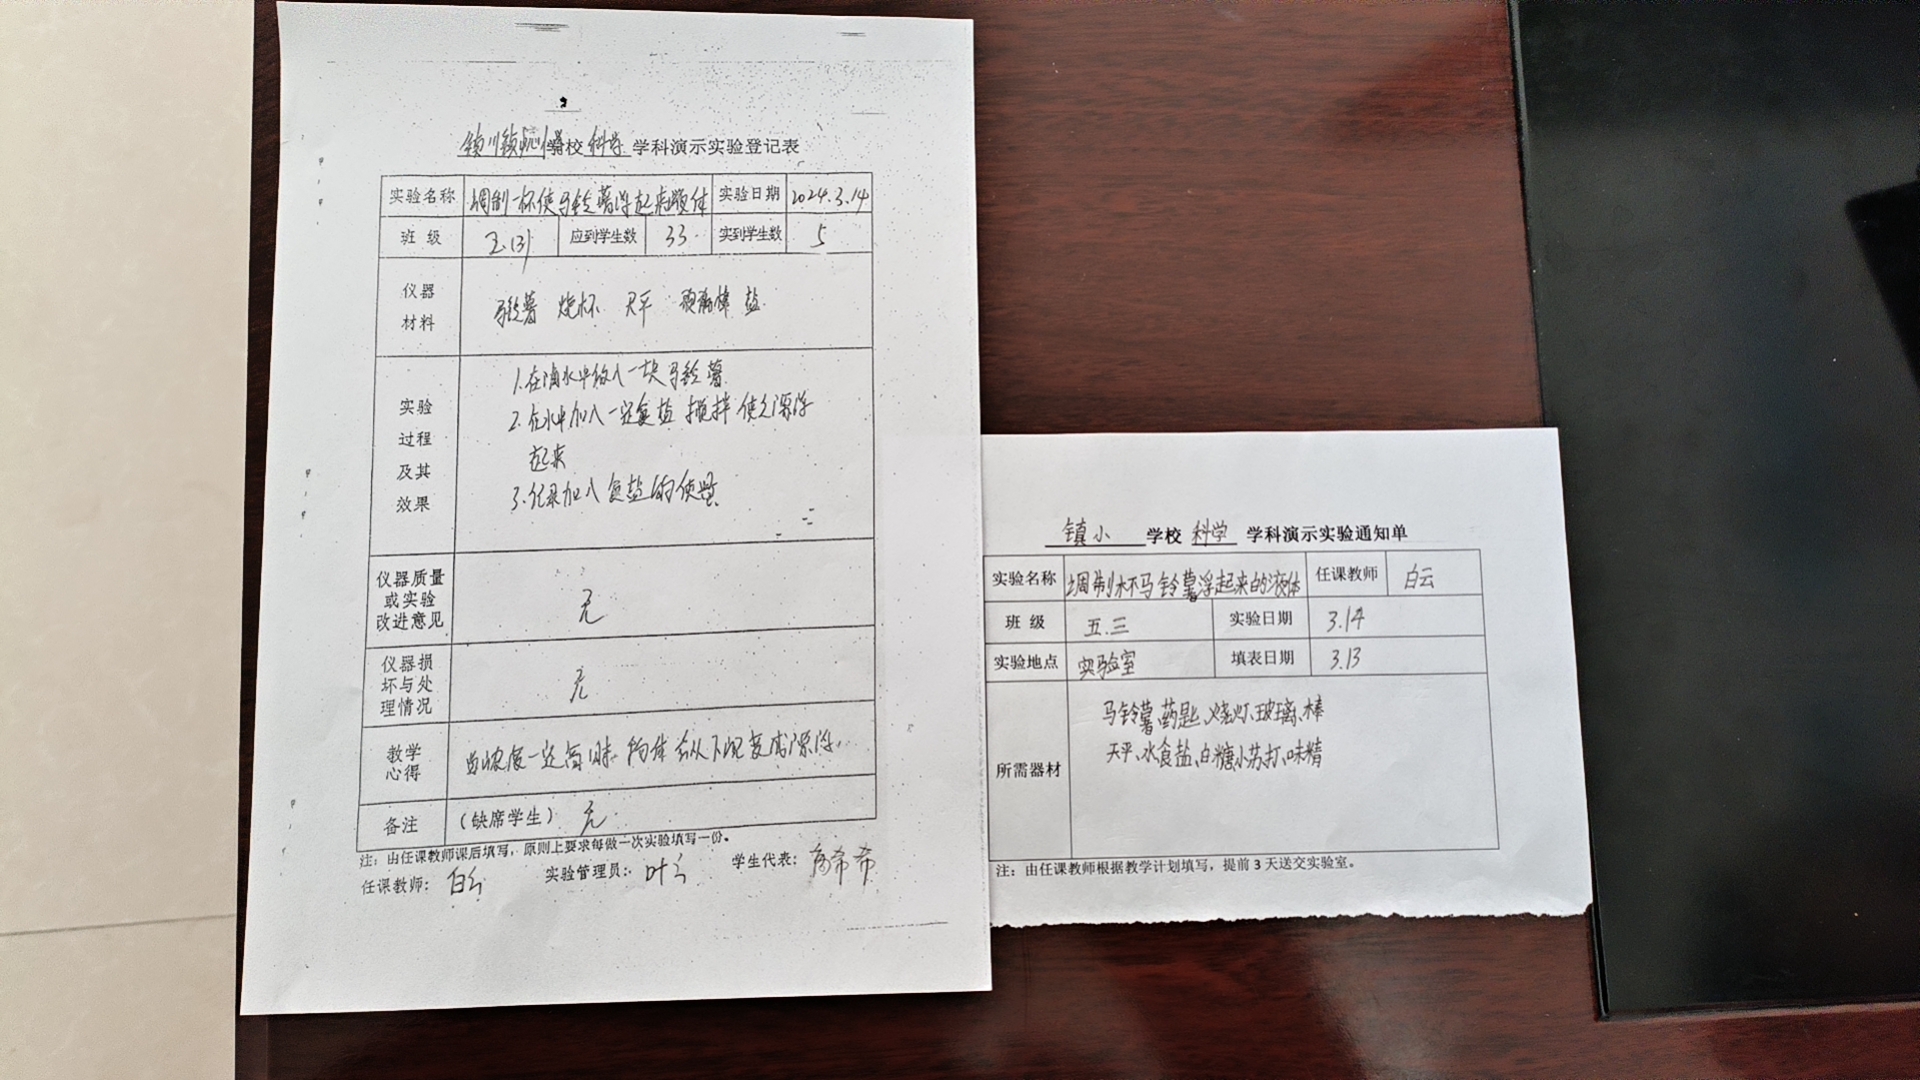 镇川镇中心小学校科学学科演示实验登记表
实验名称 调制一杯使马铃薯浮起来的液体 实验日期 2024.3.14
班 级 五.(3) 应到学生数 33 实到学生数 5
仪器材料 马铃薯 烧杯 天平 玻璃棒 盐
实验过程及其效果
1.在清水中放入一块马铃薯
2.在水中加入一定量盐 搅拌 使之漂浮
起来
3.记录加入食盐的
仪器质量或实验改进意见 无
仪器损坏与处理情况 无
教学心得 当浓度一定高时,物体会从下沉变成漂浮。
备注 (缺席学生) 无
注:由任课教师课后填写,原则上要求每做一次实验填写一份。
任课教师: 白云 实验管理员: 叶 学生代表: 希希
镇小 学校 科学 学科演示实验通知单
实验名称 调制杯马铃薯浮起来的液体 任课教师 白云
班 级 五.三 实验日期 3.14
实验地点 实验室 填表日期 3.13
所需器材
马铃薯、药匙、烧灯、玻璃、棒
天平、水食盐、白糖小苏打、味精
注:由任课教师根据教学计划填写,提前 3 天送交实验室。